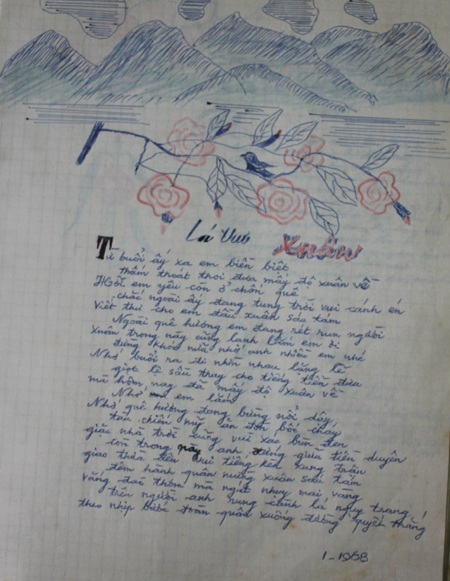 Lá Thư Xuân
Từ buổi ấy xa em biền biệt
thấm thoát thoi đưa mấy độ xuân về
Hỡi em yêu còn ở chốn quê
chắc ngoài ấy đang tung trời vui cánh én
Viết thư cho em đầu xuân sáu tám
Ngoài quê hương em đang rét run người
Xuân trong này cũng lạnh lắm em ơi
đừng khóc nữa nhớ anh nhiều em nhé
Nhớ buổi ra đi nhìn nhau lặng lẽ
giọt lệ sầu thay cho tiếng tiễn đưa
mà hôm nay đã mấy độ xuân về
Nhớ em lắm
Nhớ quê hương đang bừng nổi dậy
tàu chiến Mỹ ... bốc cháy
giặc nhà trời cũng vui
còn trong này anh duyên
giao thừa đến vui tiếng kèn xung trận
đêm hành quân mừng xuân sáu tám
vắng đào thơm mà ngát nhụy mai vàng
trên người anh rung cành lá ngụy trang
theo nhịp bước đoàn quân xuống đường quyết thắng
1-1968